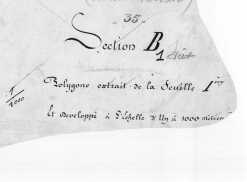 35
Section B
1
1/2000
Polygone extrait de la Feuille 1ère
Et developpé à l'échelle d'Un à 1000 mètres